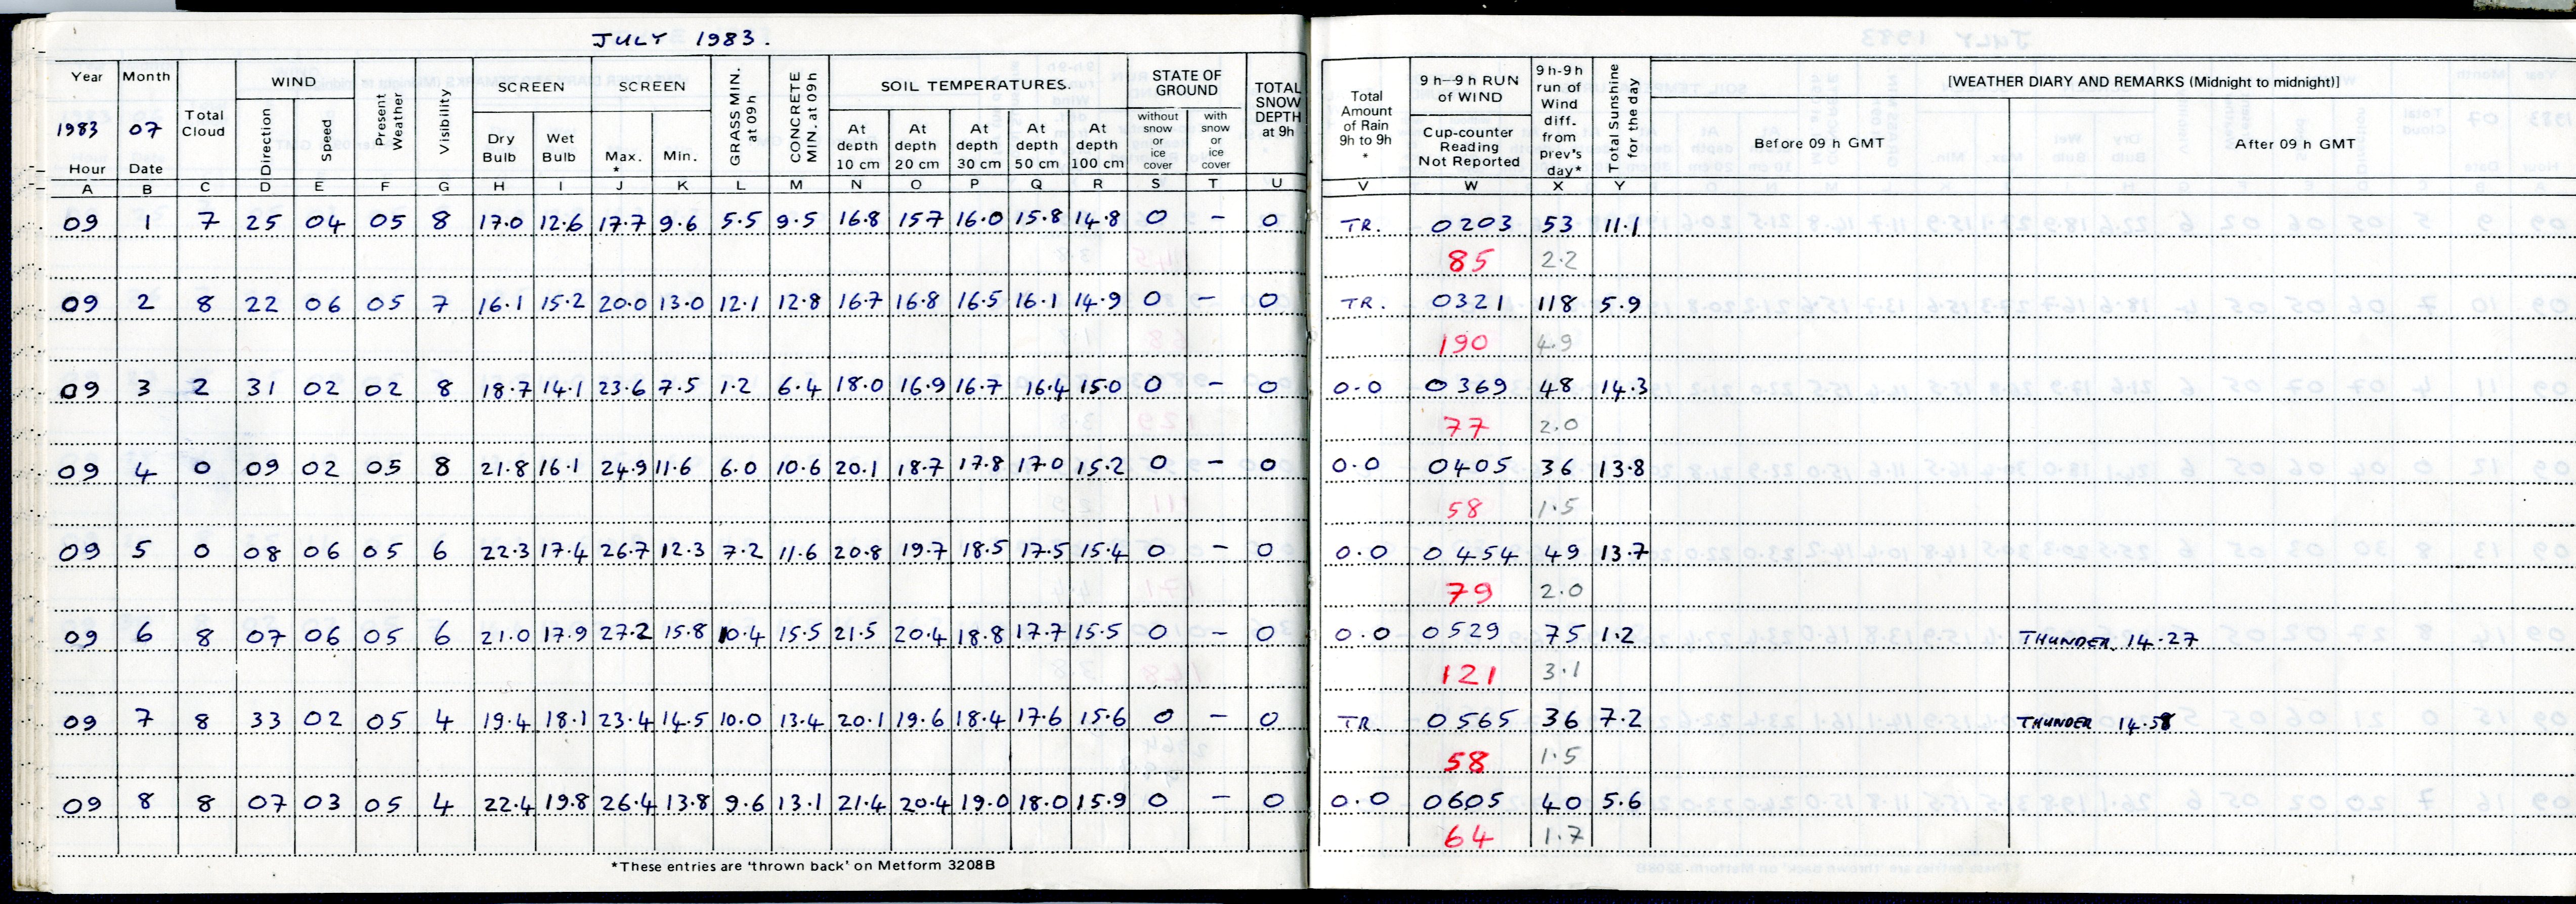 JULY 1983.
Year Month Total Cloud WIND Present Weather Visibility SCREEN SCREEN GRASS MIN. at 09h CONCRETE MIN. at 09h SOIL TEMPERATURES. STATE OF GROUND TOTAL SNOW DEPTH at 9h Total Amount of Rain 9h to 9h * 9 h–9 h RUN of WIND 9 h-9 h run of Wind diff. from prev's day* Total Sunshine for the day [WEATHER DIARY AND REMARKS (Midnight to midnight)]
1983 07 Direction Speed Dry Bulb Wet Bulb Max. * Min. At depth 10 cm At depth 20 cm At depth 30 cm At depth 50 cm At depth 100 cm without snow or ice cover with snow or ice cover Cup-counter Reading Not Reported Before 09 h GMT After 09 h GMT
Hour Date
A B C D E F G H I J K L M N O P Q R S T U V W X Y
09 1 7 25 04 05 8 17.0 12.6 17.7 9.6 5.5 9.5 16.8 157 16.0 15.8 14.8 0 – 0 TR. 0203 53 11.1
85 2.2
09 2 8 22 06 05 7 16.1 15.2 20.0 13.0 12.1 12.8 16.7 16.8 16.5 16.1 14.9 0 – 0 TR. 0321 118 5.9
190 4.9
09 3 2 31 02 02 8 18.7 14.1 23.6 7.5 1.2 6.4 18.0 16.9 16.7 16.4 15.0 0 – 0 0.0 0369 48 14.3
77 2.0
09 4 0 09 02 05 8 21.8 16.1 24.9 11.6 6.0 10.6 20.1 18.7 17.8 17.0 15.2 0 – 0 0.0 0405 36 13.8
58 1.5
09 5 0 08 06 05 6 22.3 17.4 26.7 12.3 7.2 11.6 20.8 19.7 18.5 17.5 15.4 0 – 0 0.0 0454 49 13.7
79 2.0
09 6 8 07 06 05 6 21.0 17.9 27.2 15.8 10.4 15.5 21.5 20.4 18.8 17.7 15.5 0 – 0 0.0 0529 75 1.2 THUNDER 14.27
121 3.1
09 7 8 33 02 05 4 19.4 18.1 23.4 14.5 10.0 13.4 20.1 19.6 18.4 17.6 15.6 0 – 0 TR. 0565 36 7.2 THUNDER 14.58
58 1.5
09 8 8 07 03 05 4 22.4 19.8 26.4 13.8 9.6 13.1 21.4 20.4 19.0 18.0 15.9 0 – 0 0.0 0605 40 5.6
64 1.7
*These entries are 'thrown back' on Metform 3208B